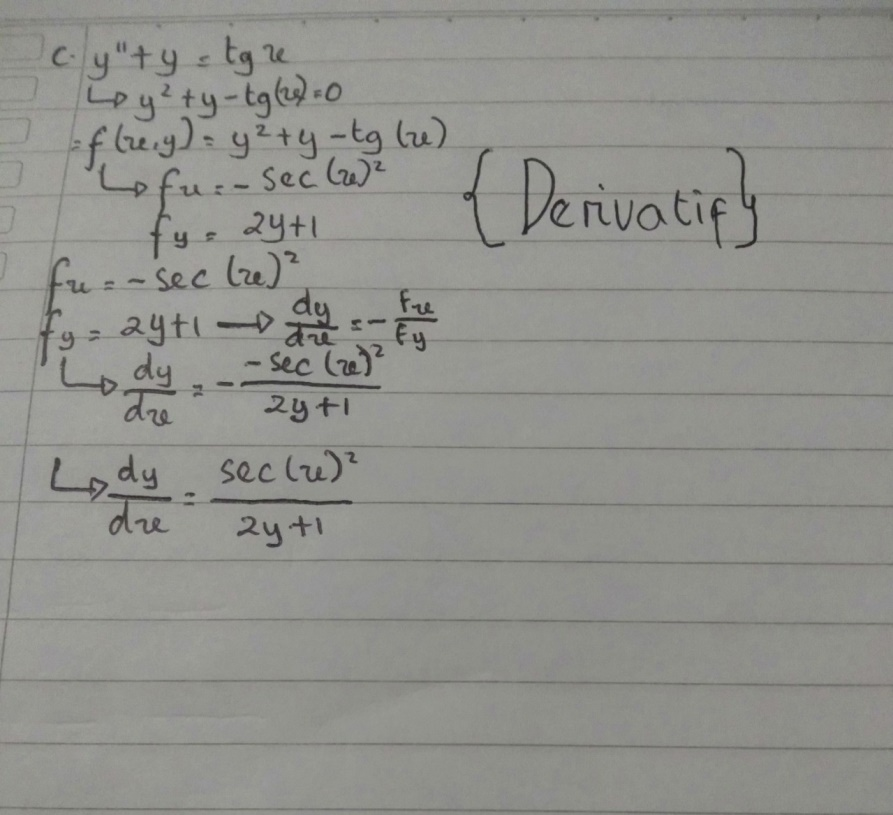 c. y" + y = tg x
↳ y² + y - tg(x) = 0
= f(x,y) = y² + y - tg(x)
↳ fx = - sec(x)²
fy = 2y+1
{Derivatif}
fx = - sec(x)²
fy = 2y+1 → dy/dx = - Fx/Fy
↳ dy/dx = - -sec(x)²/2y+1
↳ dy/dx = sec(x)²/2y+1